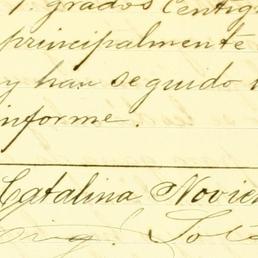 grados Centig
principalmente
y han seguido
informe.
Catalina Novie